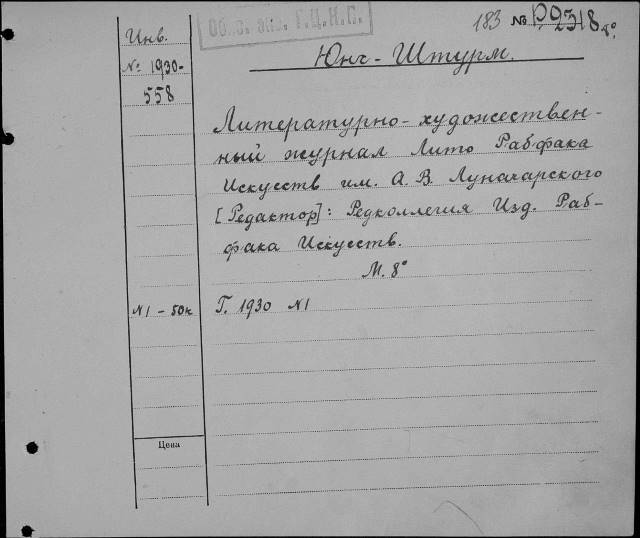 Обяз. экз. Г.Ц.К.П.
183 № P2518 8°
Инв.
№ 1930-
558
Юнг-Штурм.
Литературно-художествен-
ный журнал Лито Рабфака
Искусств им. А. В. Луначарского
[Редактор]: Редколлегия Изд. Раб-
фака Искусств.
М. 8°
N1 - 50к Г. 1930 N1
Цена